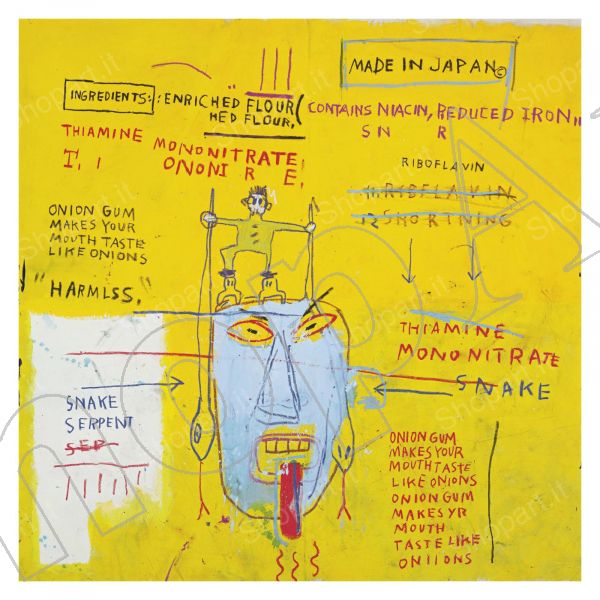 MADE IN JAPAN©
INGREDIENTS: : ENRICHED FLOUR(
HED FLOUR,
CONTAINS NIACIN, REDUCED IRON,,
S N R
THIAMINE MONONITRATE,
I, I ONONI R E,
RIBOFLAVIN
11. RIBFLAVIN
12 SHORTNING
ONION GUM
MAKES YOUR
MOUTH TASTE
LIKE ONIONS
"HARMLSS,"
THIAMINE
MONONITRATE
SNAKE
SNAKE
SERPENT
SEP
ONION GUM
MAKES YOUR
MOUTH TASTE
LIKE ONIONS
ONION GUM
MAKES YR
MOUTH
TASTE LIKE
ONIIONS
Shopart.it